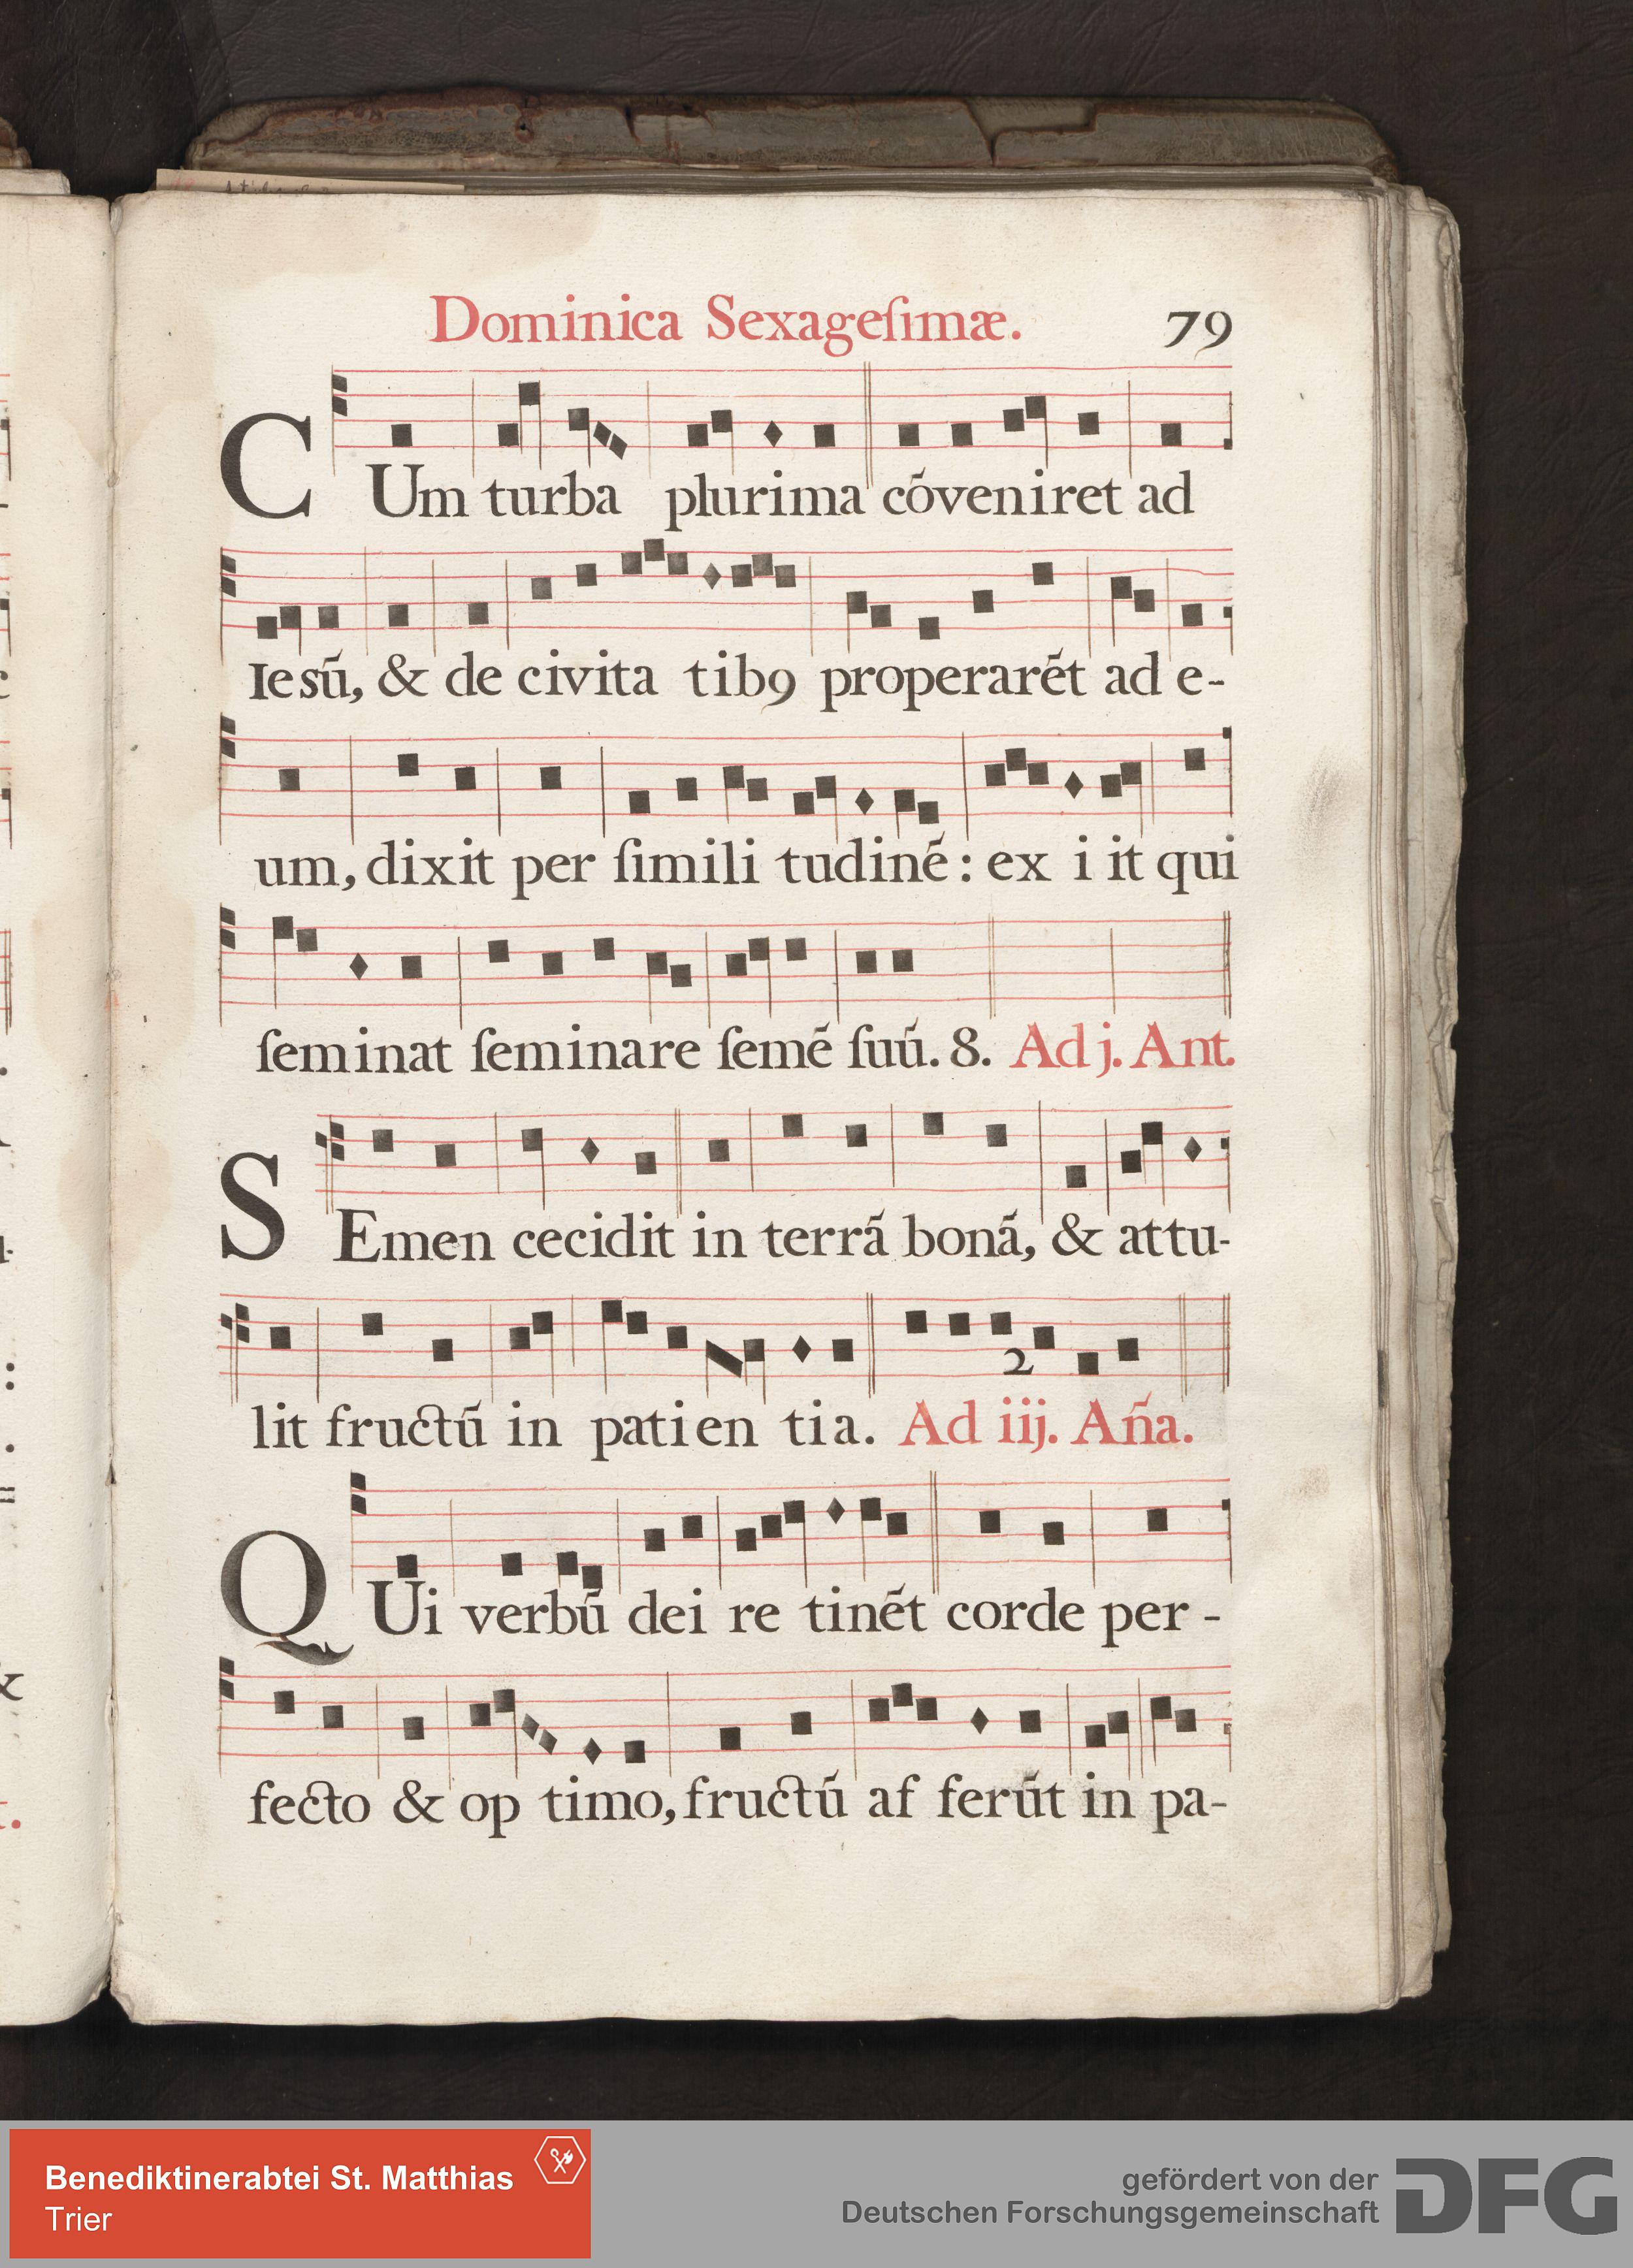 Dominica Sexageſimæ. 79
CUm turba plurima cõveniret ad
Iesũ, & de civita tibꝰ properarẽt ad e-
um, dixit per ſimili tudinẽ: ex i it qui
ſeminat ſeminare ſemẽ ſuũ. 8. Ad j. Ant.
SEmen cecidit in terrã bonã, & attu-
lit fructũ in patien tia. Ad iij. Aña.
2
QUi verbũ dei re tinẽt corde per-
fecto & op timo, fructũ af ferũt in pa-
Benediktinerabtei St. Matthias
Trier
gefördert von der
Deutschen Forschungsgemeinschaft
DFG